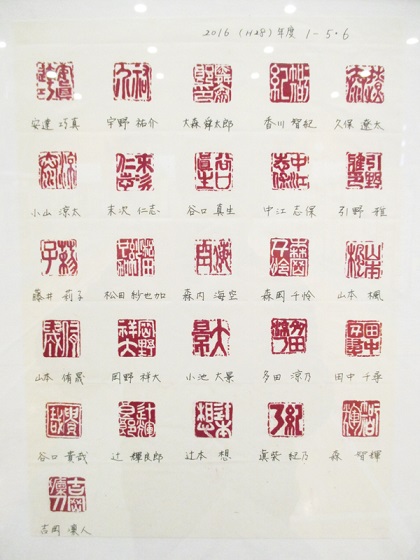 2016 (H28) 年度 1-5・6
安達 巧真 宇野 祐介 大森 舜太郎 香川 智紀 久保 遼太
小山 涼太 末次 仁志 谷口 真生 中江 志保 引野 雅
藤井 莉子 松田 紗也加 森内 海空 森岡 千怜 山本 楓
山本 侑晟 岡野 祥大 小池 大景 多田 涼乃 田中 千尋
谷口 貴哉 辻 輝良郎 辻本 想 眞柴 紀乃 森 智輝
吉岡 凛人